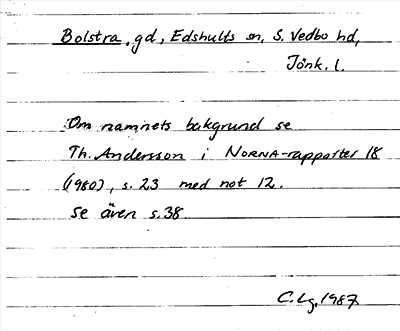 Bolstra, gd, Edshults sn, S. Vedbo hd,
Jönk. l.
Om namnets bakgrund se
Th. Andersson i NORNA-rapporter 18
(1980), s. 23 med not 12.
Se även s. 38.
C. Lg. 1987